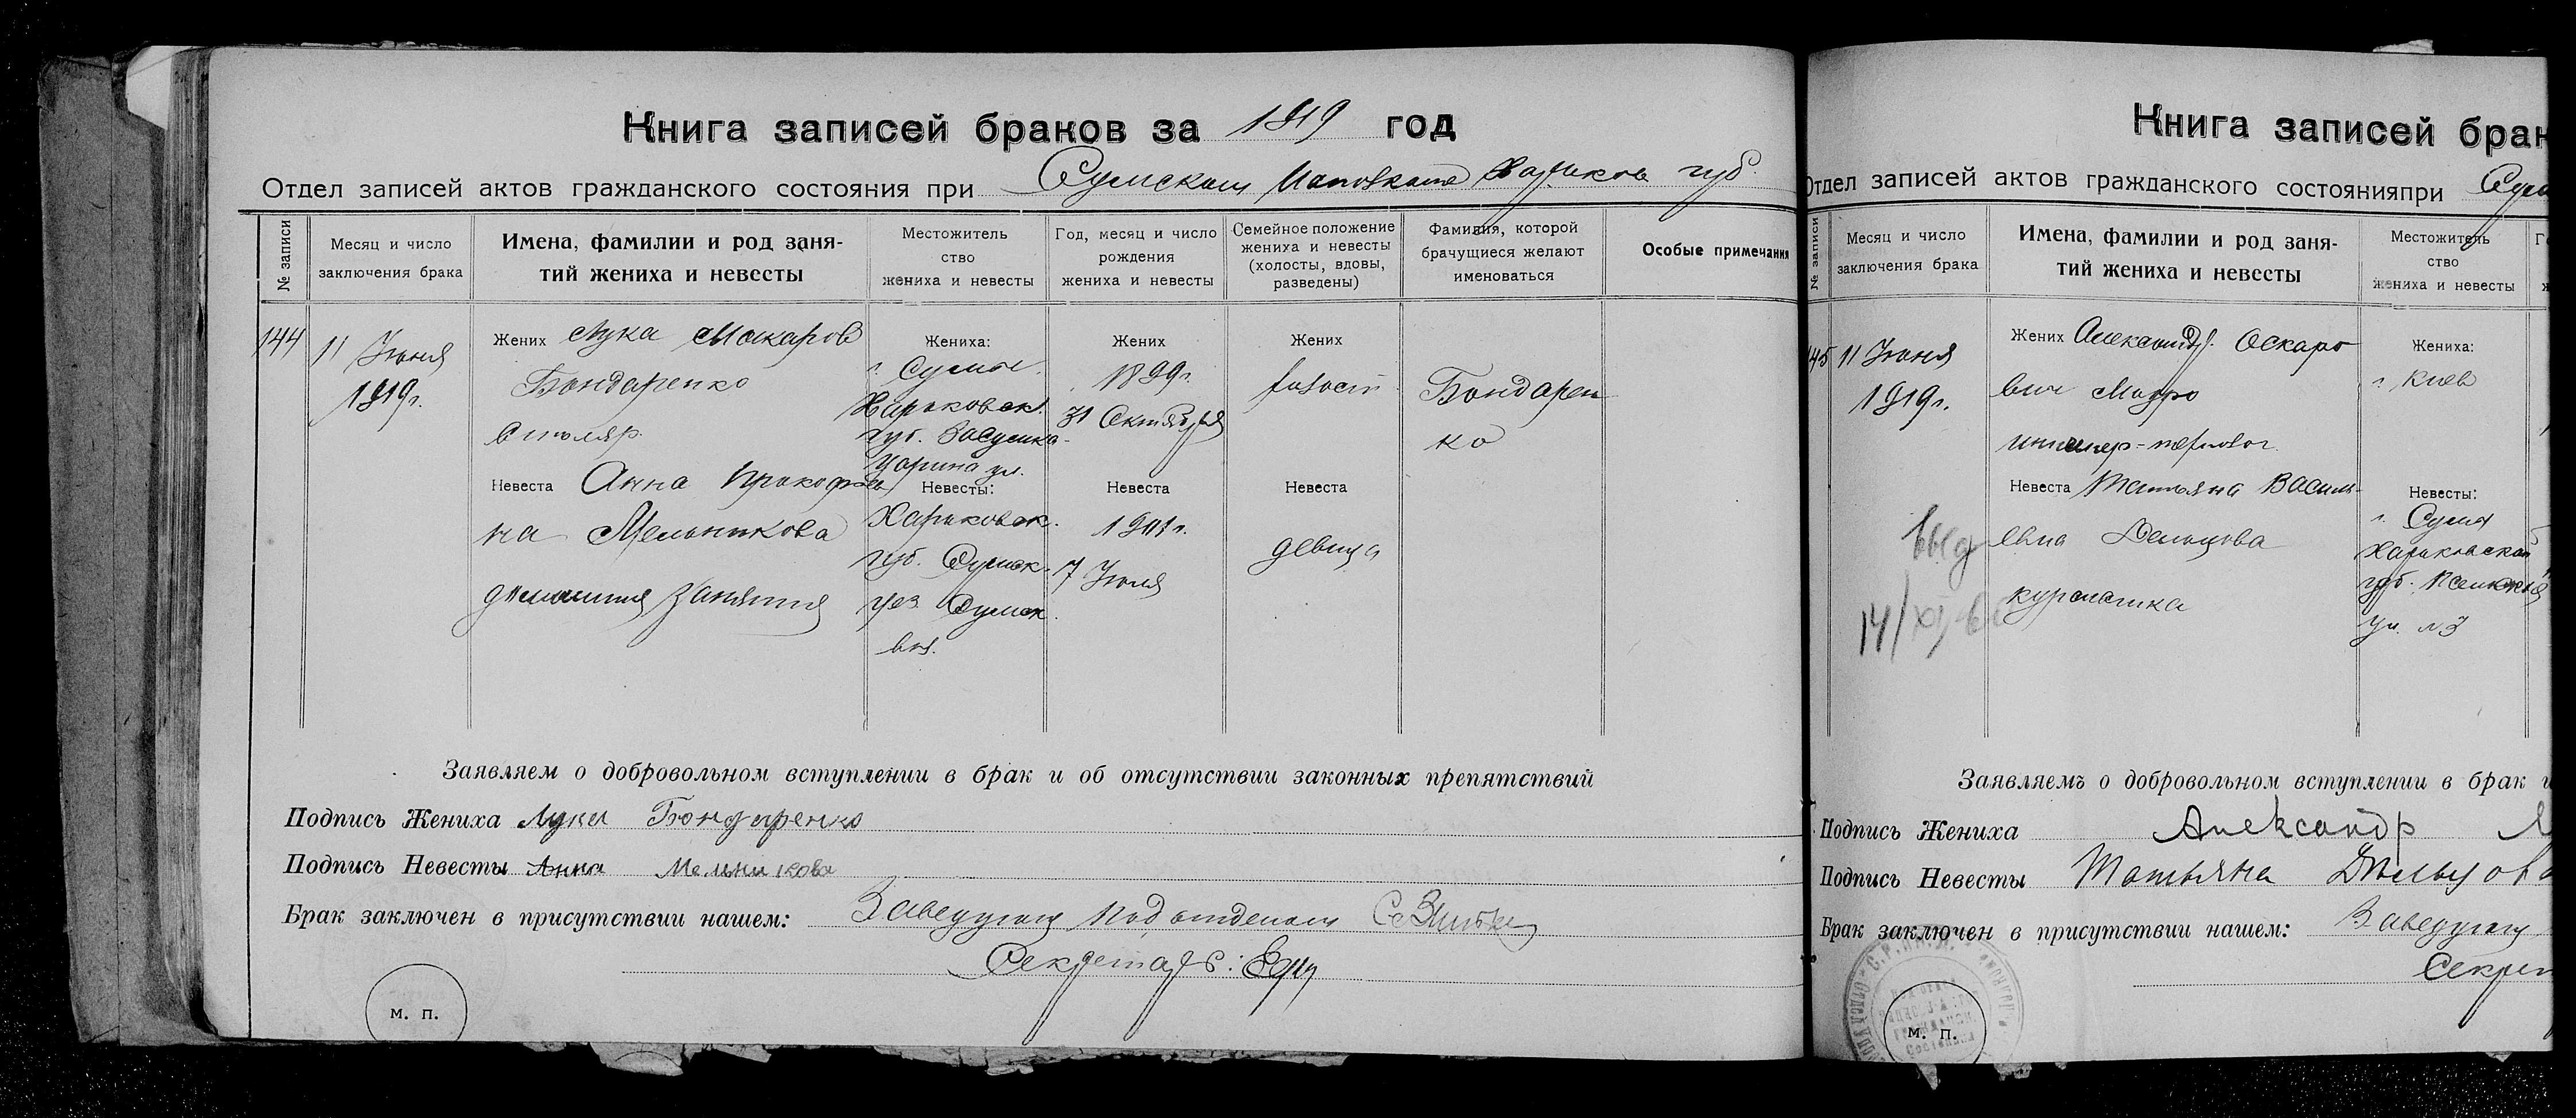 Книга записей браков за 1919 год
Отдел записей актов гражданского состояния при Сумском Харьков губ.
№ записи
Месяц и число
заключения брака
Имена, фамилии и род заня-
тий жениха и невесты
Местожитель
ство
жениха и невесты
Год, месяц и число
рождения
жениха и невесты
Семейное положение
жениха и невесты
(холосты, вдовы,
разведены)
Фамилия, которой
брачущиеся желают
именоваться
Особые примечания
144
11 Июня
1919г.
Жених Лука Макаров
Бондаренко
столяр.
Невеста Анна Прокофьев
на Мельникова
домашния занятия
Жениха:
г. Сумы
Харьковск.
губ. Засумка-
ул.
Невесты:
Харьковск.
губ. Сумск.
уез. Сумск.
вол.
Жених
1899г.
31 Октября
Невеста
1901г.
7 Июля
Жених
холост
Невеста
девица
Бондарен
ко
Заявляем о добровольном вступлении в брак и об отсутствии законных препятствий
Подпись Жениха Лука Бондаренко
Подпись Невесты Анна Мельникова
Брак заключен в присутствии нашем: Заведующ подотделом
Секретарь:
м. п.
Книга записей брак
Отдел записей актов гражданского состоянияпри Сум
№ записи
Месяц и число
заключения брака
Имена, фамилии и род заня-
тий жениха и невесты
Местожитель
ство
жениха и невесты
145
11 Июня
1919г.
Жених Александр Оскаро
вич
инженер-технолог.
Невеста Татьяна Василь-
евна Дельцова
курсистка
Жениха:
г. Киев
Невесты:
г. Сумы
Харьковской
губ.
ул. №3
выд
14/XI
Заявляемъ о добровольном вступлении в брак и
Подпись Жениха Александр
Подпись Невесты Татьяна Дѣльцова
Брак заключен в присутствии нашем: Заведующ
Секрет
м. п.